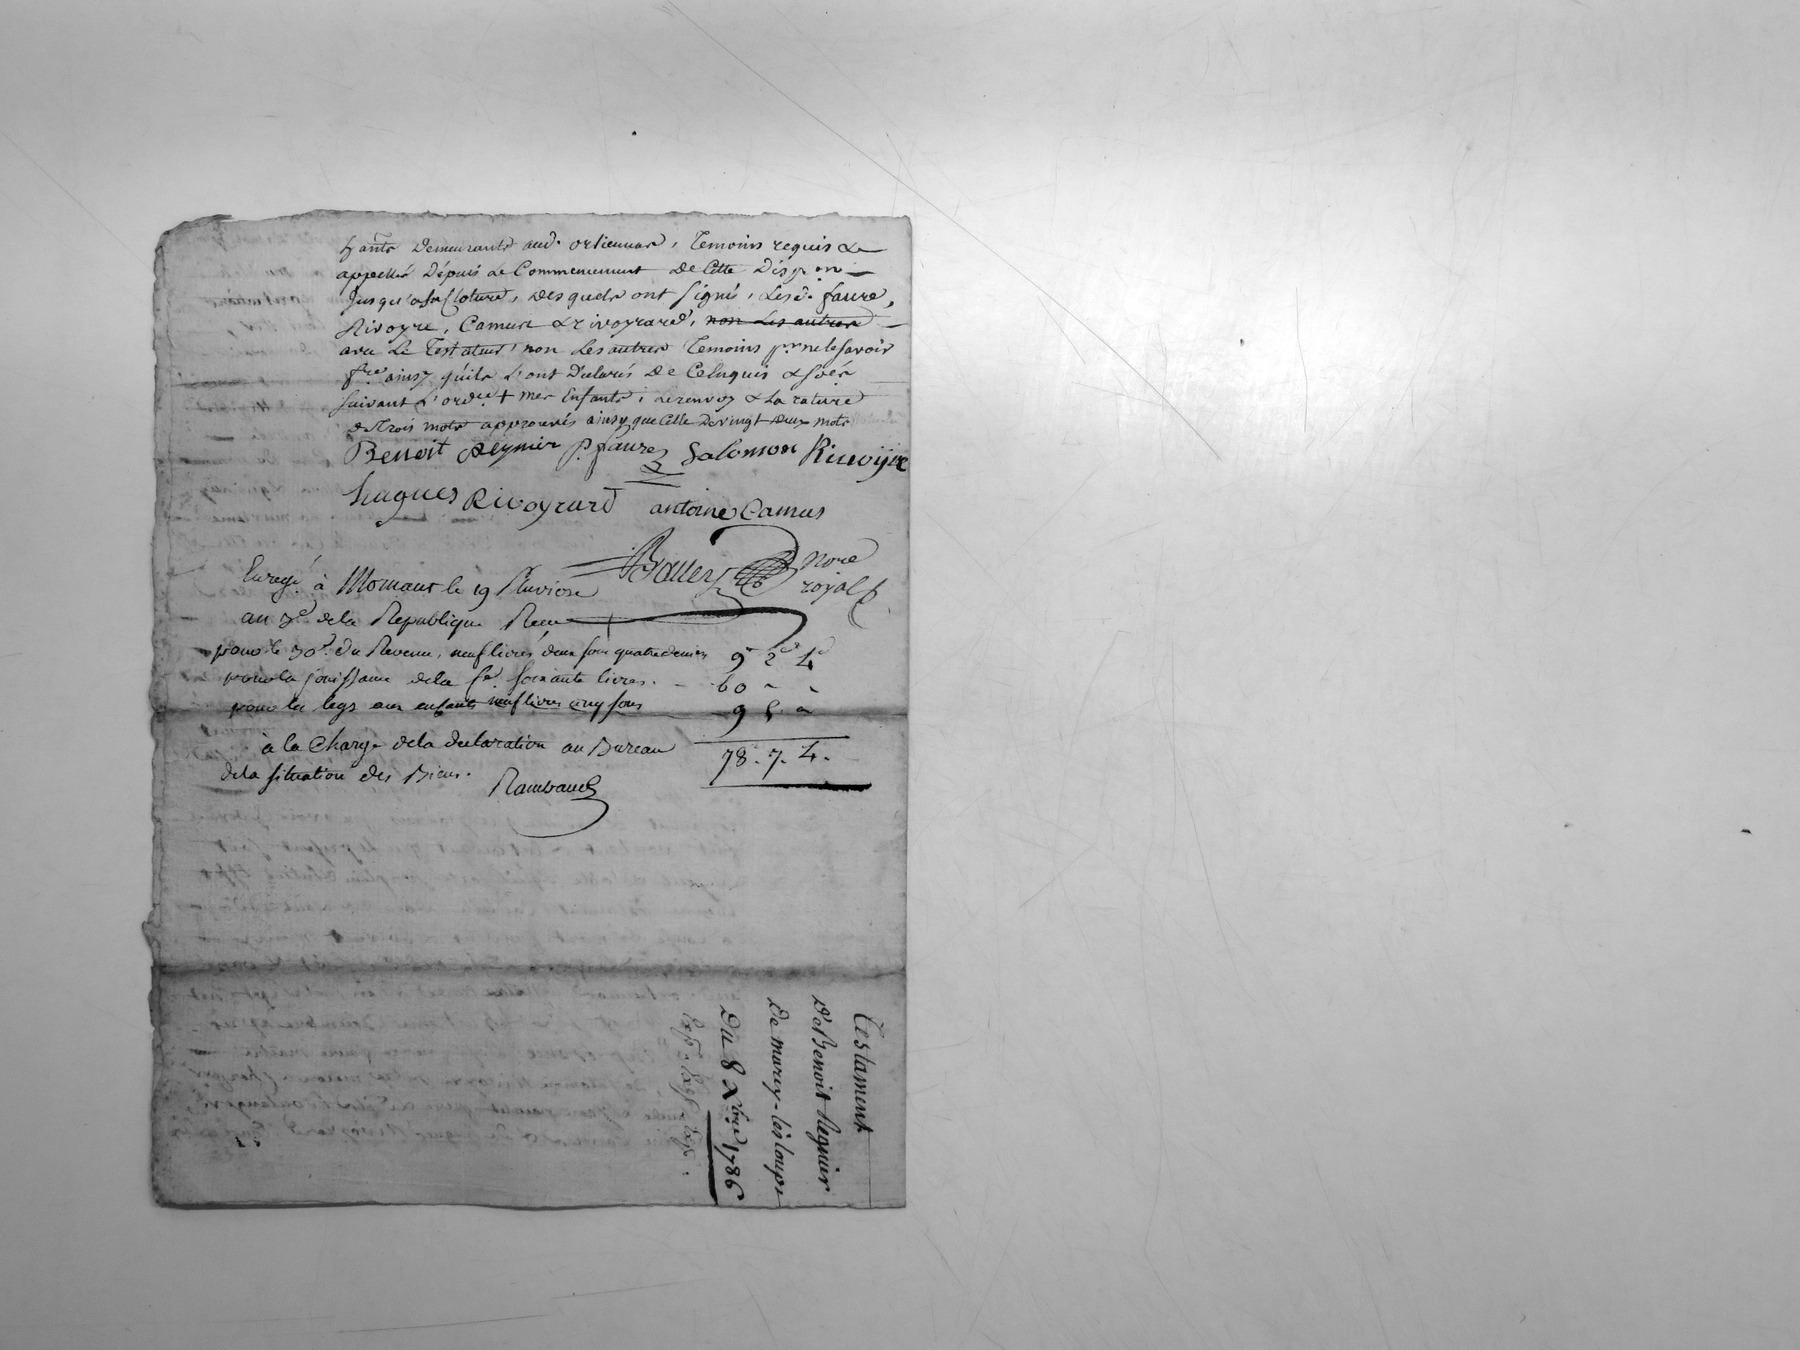 hants demeurants aud. orlienas, Temoins requis &
appellés Dépuis le Commencement de Cette Dispon
Jusqu'a sa Cloture, desquels ont signé, Lesd. faure,
Rivoyre, Camus & rivoyrard, non les autres
avec Le Testateur, non Les autres Temoins pr ne le savoir
fre ainsy qu'ils L'ont Declarés de Ce Enquis & Soés
suivant L'ordce + mes Enfants; Le renvoy & La rature
de trois mots approuvés ainsy que Celle de vingt deux mots
Benoit Reynier P. faure Salomon Rivoyre
hugues Rivoyrard antoine Camus
Enregé à Mornant le 19 Pluviose
nore
royal
au 3e de la Republique Recu
pour le 30e du Revenu, neuf livres deux sous quatre deniers 9 2 4
pour la jouissance de la fe soixante livres. 60 " "
pour les legs aux enfants neuf livres cinq sous 9 5 "
à la charge de la declaration au Bureau 78. 7. 4.
de la situation des Biens.
Rambaud
Testament
de Benoit Regnier
De marcy-les loups
Du 8 Xbre 1786